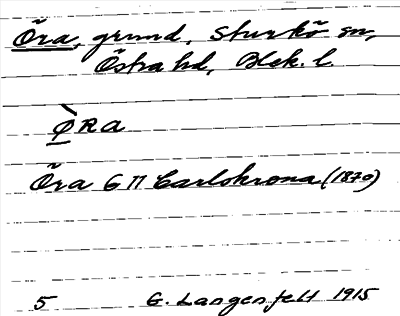 Öra, grund, Sturkö sn,
Östra hd, Blek. l
Ø̀Ra
Öra GΠ Carlskrona (1870)
5 G. Langenfelt 1915